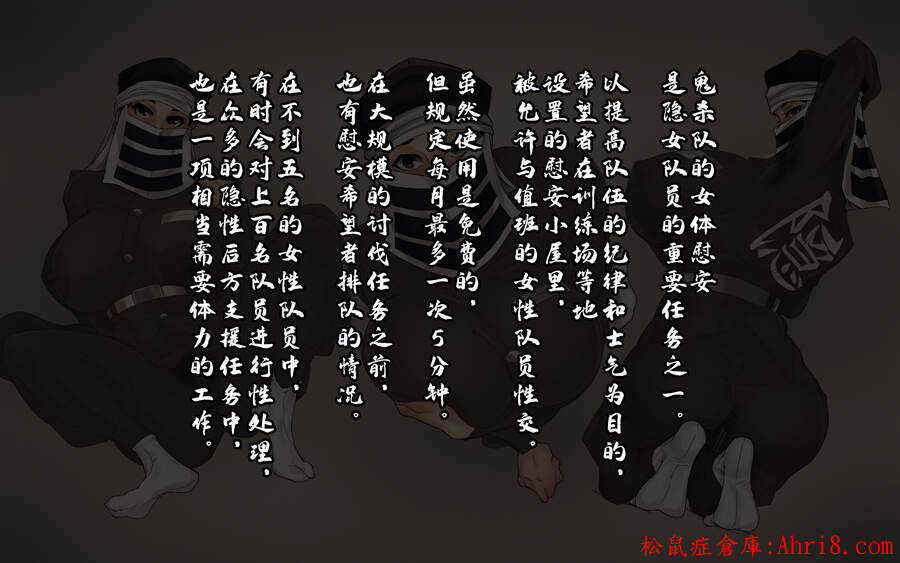 鬼杀队的女体慰安
是隐女队员的重要任务之一。
以提高队伍的纪律和士气为目的，
希望者在训练场等地
设置的慰安小屋里，
被允许与值班的女性队员性交。
虽然使用是免费的，
但规定每月最多一次5分钟。
在大规模的讨伐任务之前，
也有慰安希望者排队的情况。
在不到五名的女性队员中，
有时会对上百名队员进行性处理，
在众多的隐性后方支援任务中，
也是一项相当需要体力的工作。
松鼠症倉庫:Ahri8.com